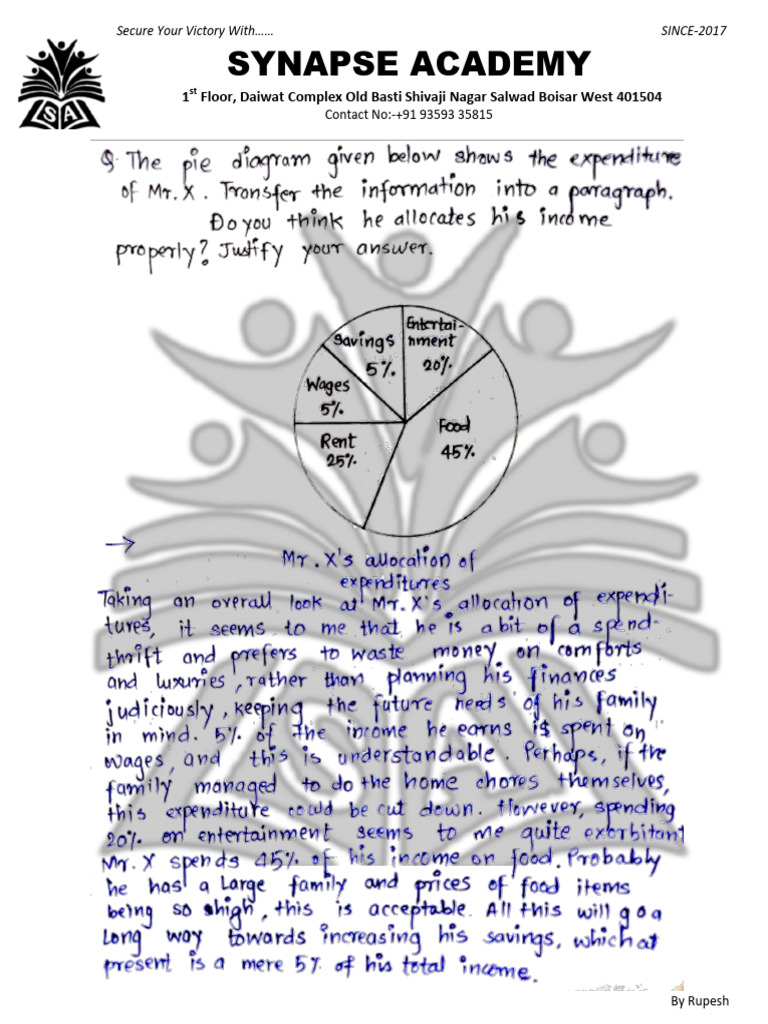 Secure Your Victory With...... SINCE-2017
SYNAPSE ACADEMY
1st Floor, Daiwat Complex Old Basti Shivaji Nagar Salwad Boisar West 401504
Contact No:-+91 93593 35815
SA
Q. The pie diagram given below shows the expenditure
of Mr. X. Transfer the information into a paragraph.
Do you think he allocates his income
properly? Justify your answer.
Entertai-
nment
20%
Savings
5%
Wages
5%
Food
45%
Rent
25%
→
Mr. X's allocation of
expenditures
Taking an overall look at Mr. X's allocation of expendi-
tures, it seems to me that he is a bit of a spend-
thrift and prefers to waste money on comforts
and luxuries, rather than planning his finances
judiciously, keeping the future needs of his family
in mind. 5% of the income he earns is spent on
wages, and this is understandable. Perhaps, if the
family managed to do the home chores themselves,
this expenditure could be cut down. However, spending
20% on entertainment seems to me quite exorbitant
Mr. X spends 45% of his income on food. Probably
he has a large family and prices of food items
being so high, this is acceptable. All this will go a
long way towards increasing his savings, which at
present is a mere 5% of his total income.
By Rupesh